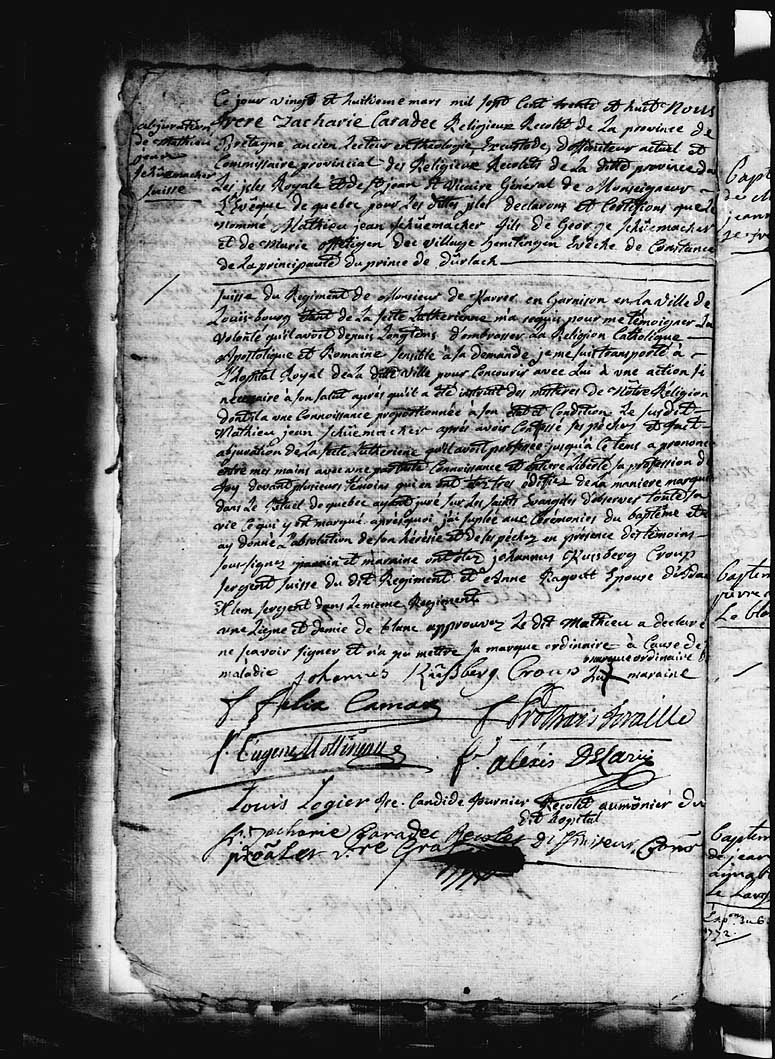 abjuration
de Mathieu
jean
schüemacher
suisse
Ce jour vingt et huitieme mars mil sept Cent trente et huit Nous
frere Zacharie Caradec Religieux Recolet de La province de
Bretagne ancien Lecteur en theologie, Excustode, deffiniteur actuel et
Commissaire provincial des Religieux Recolets de La ditte province dans
Les isles Royale et de st jean et Vicaire General de Monseigneur
L'Evêque de quebec pour Les dittes isles declarons et Certifions que Le
nommé Mathieu jean schüemacher fils de George schüemacher
et de Marie du village Evêché de Constance
de La principauté du prince de Dürlach
suisse du Regiment de Monsieur de Karrer en Garnison en La ville de
Louisbourg étant de La secte Lutherienne ma requis pour me témoigner La
volonté qu'il avoit depuis Longtems d'embrasser La Religion Catholique
Apostolique et Romaine sensible à sa demande je me suis transporté à
L'hopital Royal de La ditte ville pour Concourir avec Lui à une action si
necessaire à son salut après qu'il a été instruit des mistères de Nôtre Religion
dont il a une Connoissance proportionnée à son état et Condition Le susdit
Mathieu jean schüemacher après avoir Confessé ses péchez et fait
abjuration de La secte Lutherienne qu'il avoit professée jusqu'à Ce tems a prononcé
entre mes mains avec une parfaite Connoissance et entiere Liberté sa profession de
foy devant plusieurs témoins qui en ont été tres édifiez de La maniere marquée
dans Le Rituel de quebec ayant juré sur Les saints Evangiles d'observer toute sa
vie Ce qui y est marqué. après quoi j'ai supléé aux Cérémonies du baptême et
ay donné L'absolution de son hérésie et de ses péchez en presence des temoins
soussignez parain et maraine ont étez johannes Krüsberg Croup
sergent suisse du dit Regiment et Anne Ragoutt Epouse
sergent dans Le meme Regiment
une Ligne et demie de blanc approuvez Le dit Mathieu a declaré
ne sçavoir signer et n'a pû mettre sa marque ordinaire à Cause de
maladie Johannes Krüsberg Croup marque ordinaire de
La maraine
f félix Camax f
f. Eugene f. alexis
Louis Logier fre. Candide fournier Recolet aumônier du
dit hopital
fr. Zacharie Caradec Recolet Diffiniteur, Comre
proãl et vre Gral
Bapt
de
jean
Le
Baptem
pierre
Le
Baptem
de jean
Le